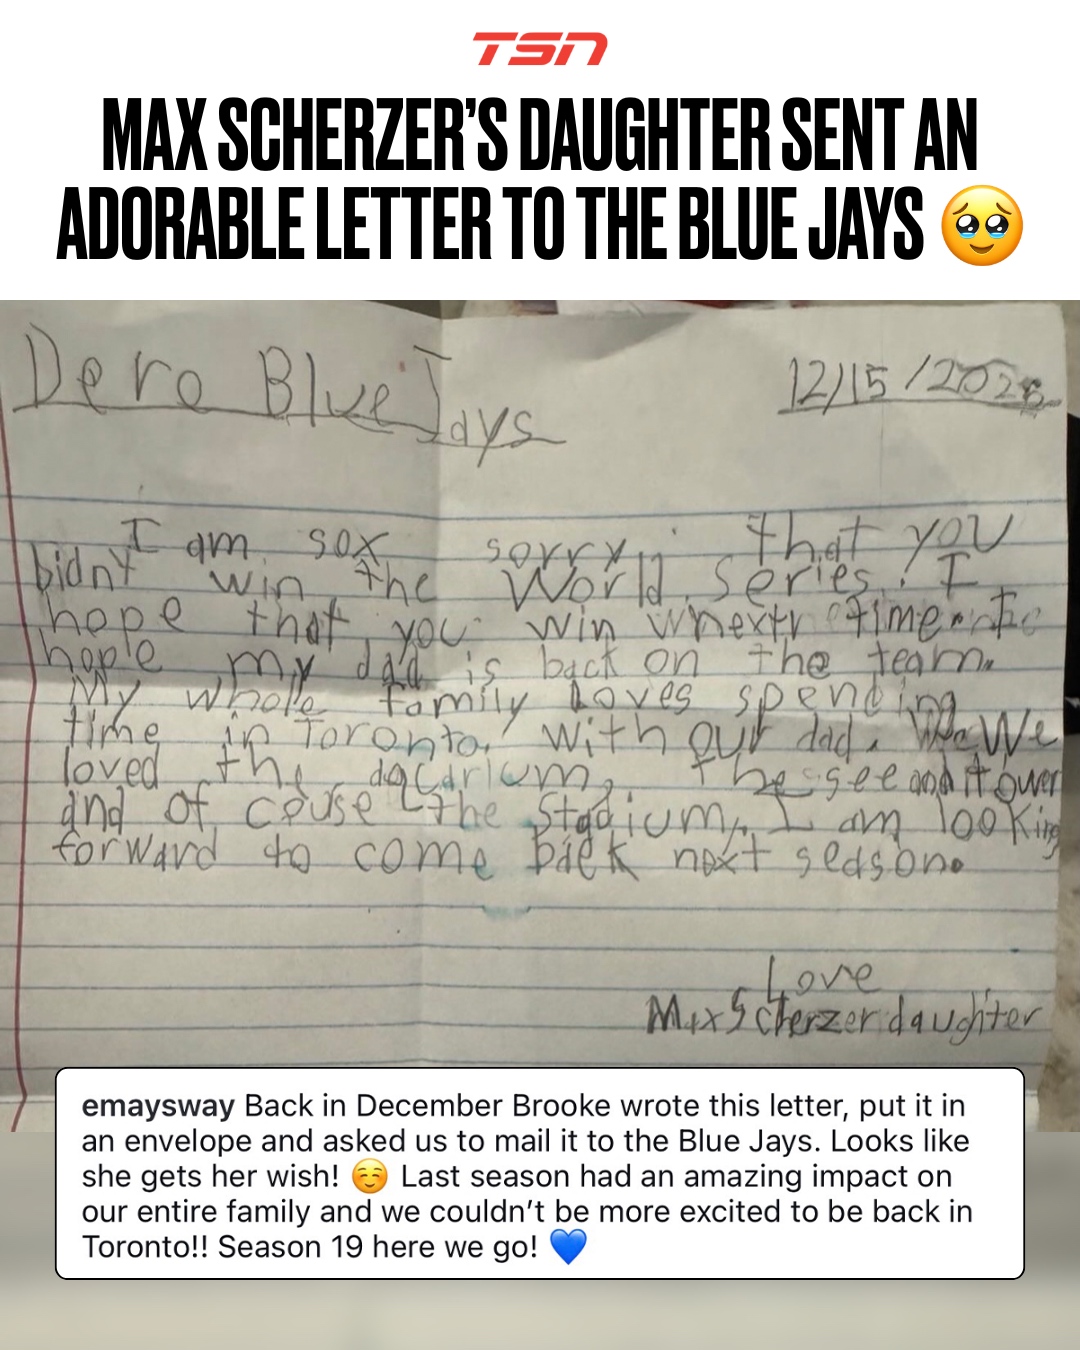 TSN
MAX SCHERZER'S DAUGHTER SENT AN
ADORABLE LETTER TO THE BLUE JAYS 🥹
Dero Blue Jays
12/15/2025
I am sox sorry that you
bidnt win the World series. I
hope that you win next time. I
hope my dad is back on the team.
My whole family loves spending
time in Toronto. with our dad. We
loved the aqcarium, the see and it ower
and of couse the Stadium. I am looking
forward to come back next season.
Love
Max Scherzer daughter
emaysway Back in December Brooke wrote this letter, put it in
an envelope and asked us to mail it to the Blue Jays. Looks like
she gets her wish! ☺️ Last season had an amazing impact on
our entire family and we couldn't be more excited to be back in
Toronto!! Season 19 here we go! 💙